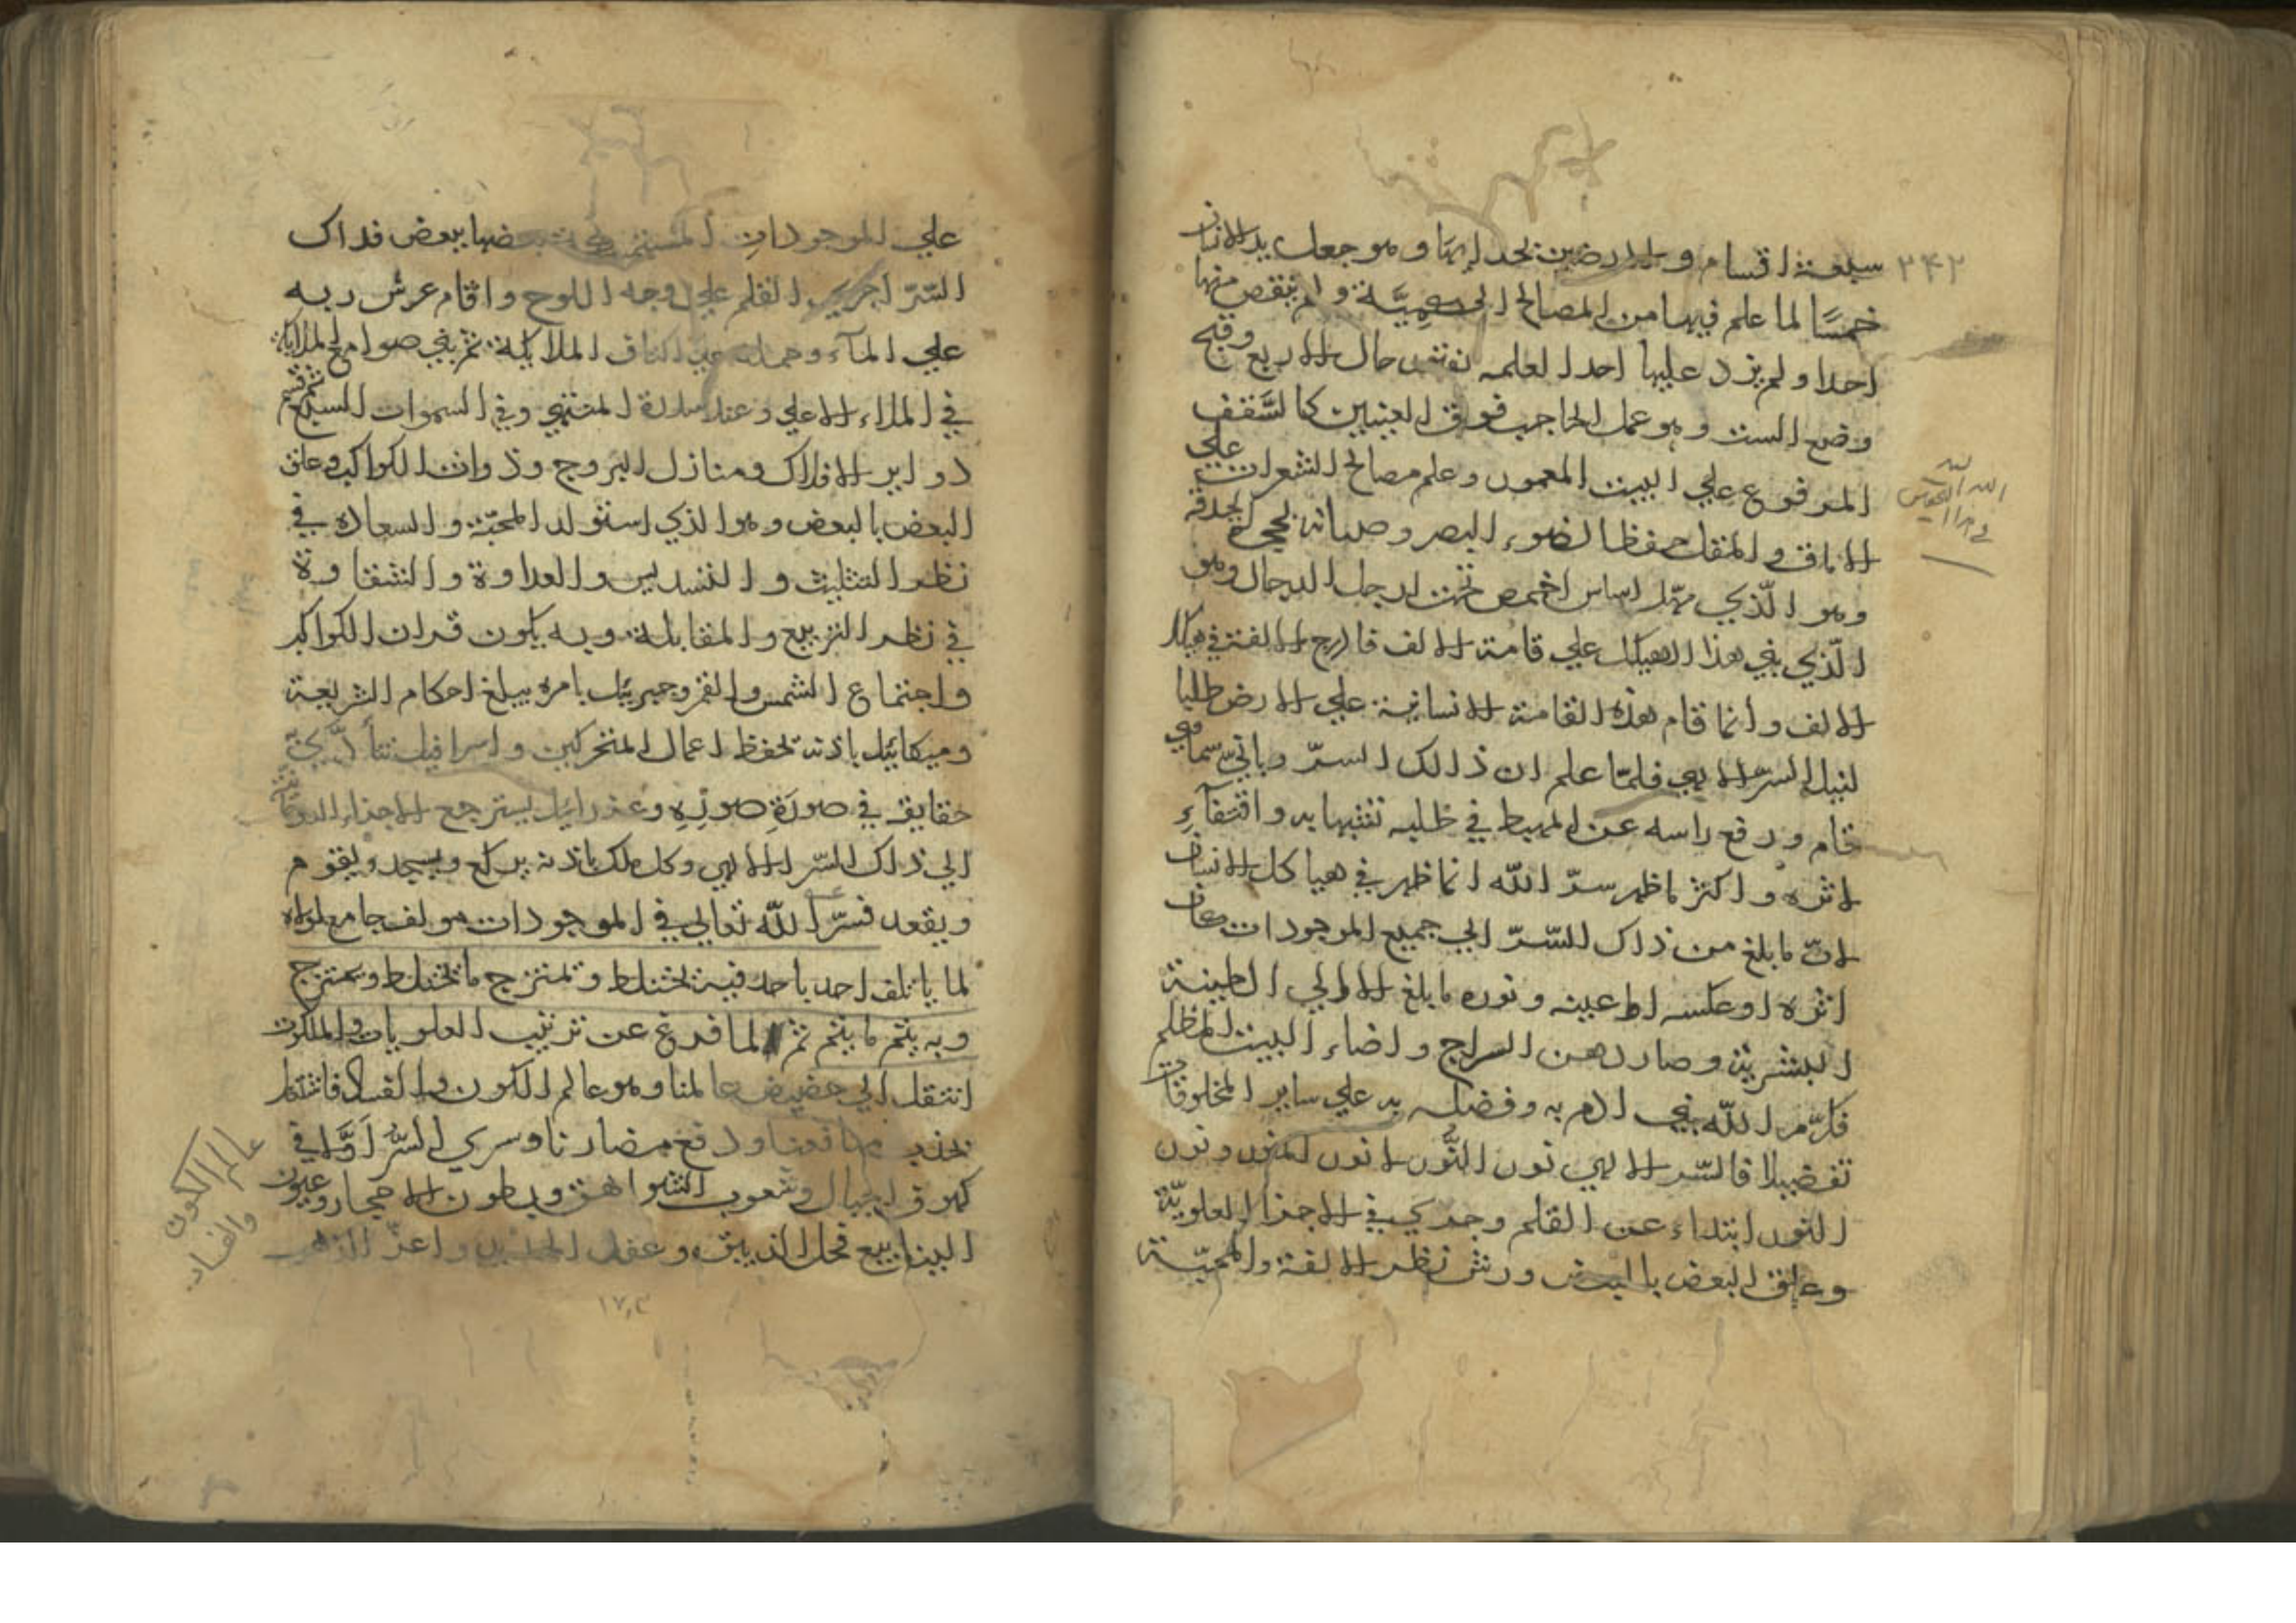 ٢٤٢
سبعة اقسام و الارضين بحد ايها وهو جعل يد الانسان
خمسًا لما علم فيها من المصالح ولم ينقص منها
احدا ولم يزد عليها احدا لعلمه نقص حال الاربع وقبح
وضع الست وهو عمل الحاجب فوق العينين كالسَّقف
المرفوع علي البيت المعمور وعلم مصالح الشعرات علي
الاماق و المقل حفظا لضوء البصر وصيانة لحجر الحدقة
وهو الّذي مهّد اساس اخمص تحت ارجل الرجال وهو
الّذي بني هذا الهيكل علي قامة الالف فادرج الالفة في هيكل
الالف وانما قام هذه القامة الانسانية علي الارض طلبا
لنيل السرّ الالهي فلمّا علم ان ذالك السرّ وباتيّ سماوي
قام ورفع راسه عن المهبط في طلبه تشبها به واقتفآءِ
اثره واكثر ما ظهر سرّ اللّه انما ظهر في هياكل الانسان
لانّ ما بلغ من ذاك السّرّ الي جميع الموجودات كان
اثره او عكسه اما عينه ونوره ما بلغ الا الي الطينة
البشرية وصار دهن السراج و اضاء البيت المظلم
فكرّم اللّه بني ادم به وفضله به علي ساير المخلوقات
تفضيلا فالسّر الالهي نون النّون لا نون المنون ونون
النون ابتداء عن القلم وجري في الاجزا العلويّة
وعلق البعض بالبعض ورش نظر الالفة والمحبّة
اللّه
علي الموجودات بعضها ببعض فذاك
السّرّ اجري القلم علي وجه اللوح واقام عرش ربه
علي المآء وحمله علي اكتاف الملايكة ثم بني صوامع الملايكة
في الملاء الاعلي وعند سدرة المنتهي وفي السموات السبع ثم قسم
دواير الافلاك ومنازل البروج وذوات الكواكب وعلق
البعض بالبعض وهو الذي استولد المحبّة والسعادة في
نظر التثليث و التسديس والعداوة والشقاوة
في نظر التربيع و المقابلة وبه يكون قران الكواكب
واجتماع الشمس والقمر وجبرئيل بامره يبلغ احكام الشريعة
وميكائيل باذنه تحفظ اعمال المتحركين واسرافيل
حقايق في صورَةِ صورِهِ وعزرائيل يسترجع الاجزاء
الي ذلك السّر الالهي وكل ملك باذنه يركع ويسجد ويقوم
ويقعد فسرّ اللّه تعالي في الموجودات مولف جامع لولاه
لما ياتلف احد باحد فيه تختلط و تمتزج ما تختلط وتمتزج
وبه يتم ما يتم ثم لما فرغ عن ترتيب العلويات والملكوت
انتقل الي حضيض عالمنا وهو عالم الكون والفساد فاشتغل
بجذب منافعنا ودفع مضارنا وسري السّرُّ اوَّلا في
كهوف الجبال وشعوب الشواهق وبطون الاحجار وعيون
الينابيع فحل الزيبق و عقل واعزّ الذهب
عالم الكون
والفساد
١٧٠٣